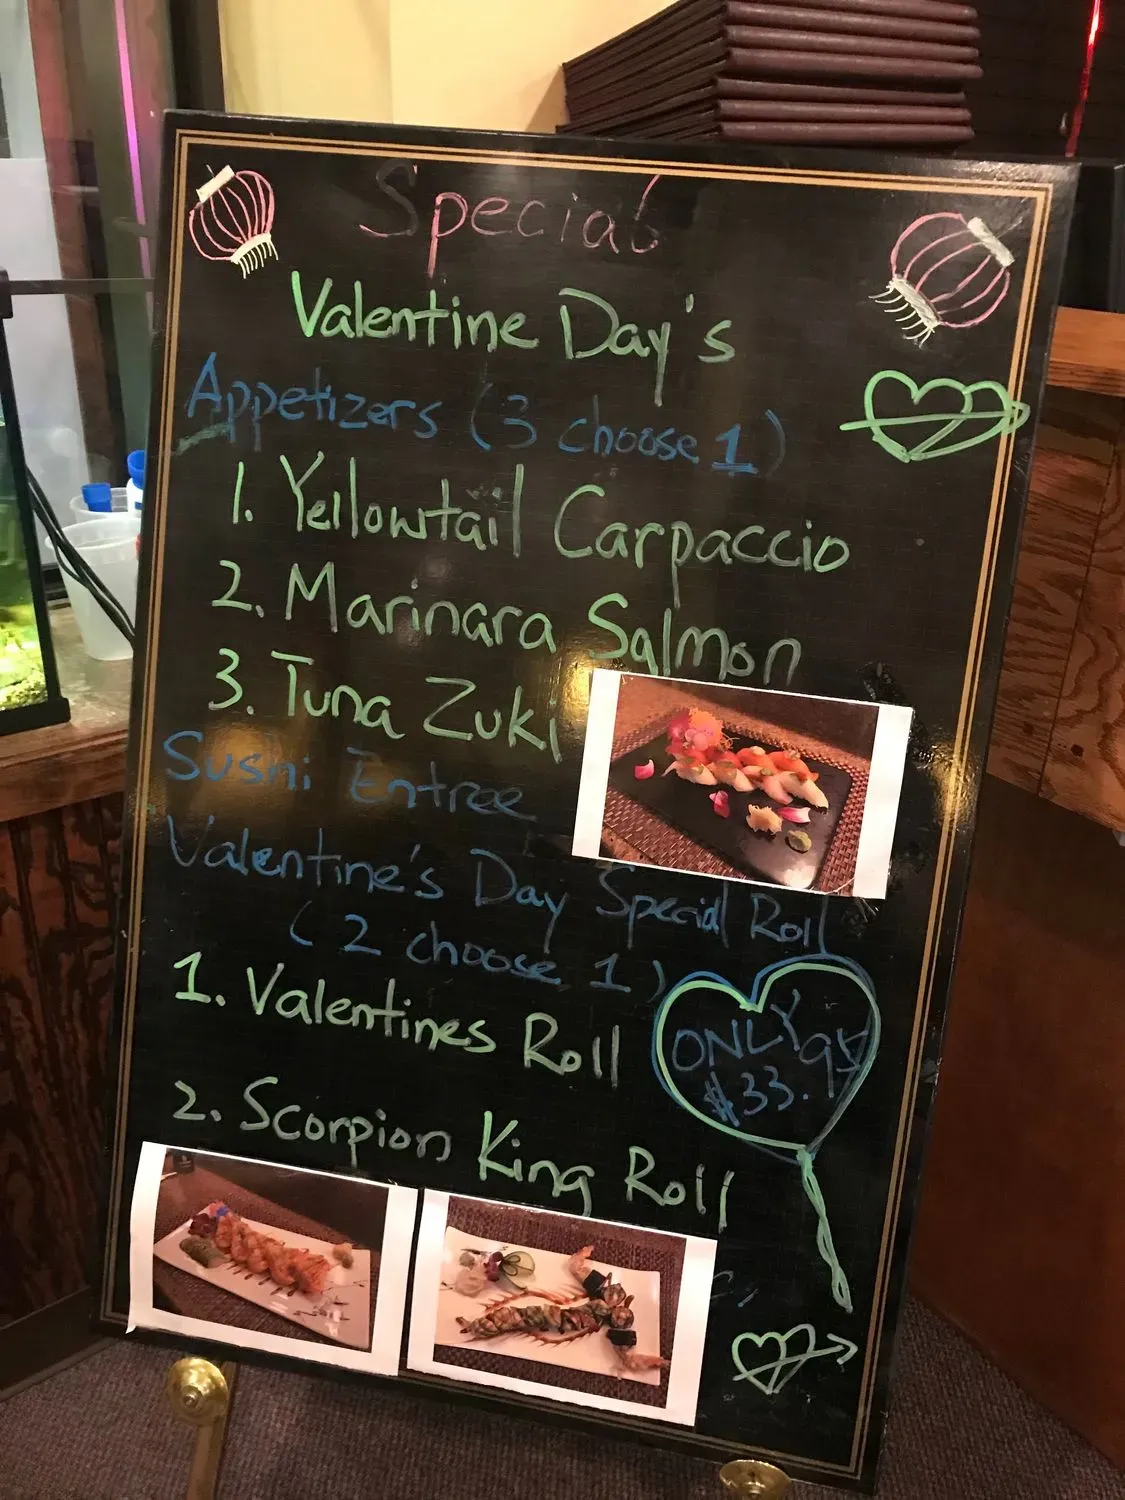 Special
Valentine Day's
Appetizers (3 choose 1)
1. Yellowtail Carpaccio
2. Marinara Salmon
3. Tuna Zuki
Sushi Entree
Valentine's Day Special Roll
(2 choose 1)
1. Valentines Roll
ONLY
$33.95
2. Scorpion King Roll